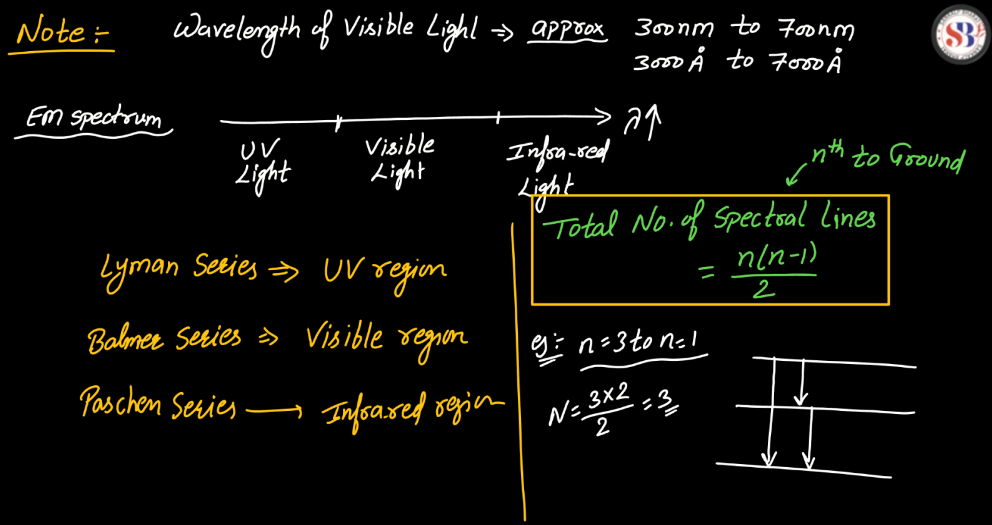 Note :- Wavelength of Visible Light ⇒ approx 300nm to 700nm
3000Å to 7000Å
EM spectrum
λ↑
UV Light
Visible Light
Infra-red Light
nth to Ground
Total No. of Spectral lines
= n(n-1)/2
Lyman Series ⇒ UV region
Balmer Series ⇒ Visible region
Paschen Series → Infrared region
eg:- n=3 to n=1
N = 3×2/2 = 3
SB